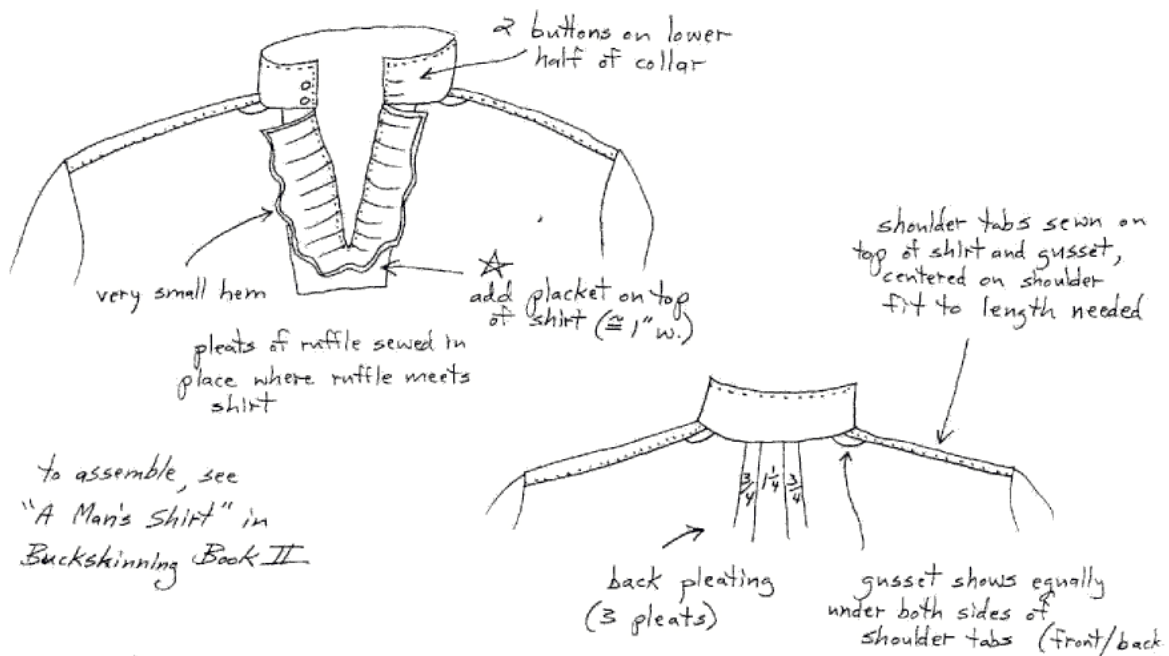 2 buttons on lower
half of collar
very small hem
☆
add placket on top
of shirt (≅ 1" w.)
pleats of ruffle sewed in
place where ruffle meets
shirt
shoulder tabs sewn on
top of shirt and gusset,
centered on shoulder
fit to length needed
to assemble, see
"A Man's Shirt" in
Buckskinning Book II
3/4 1 1/4 3/4
back pleating
(3 pleats)
gusset shows equally
under both sides of
shoulder tabs (front/back